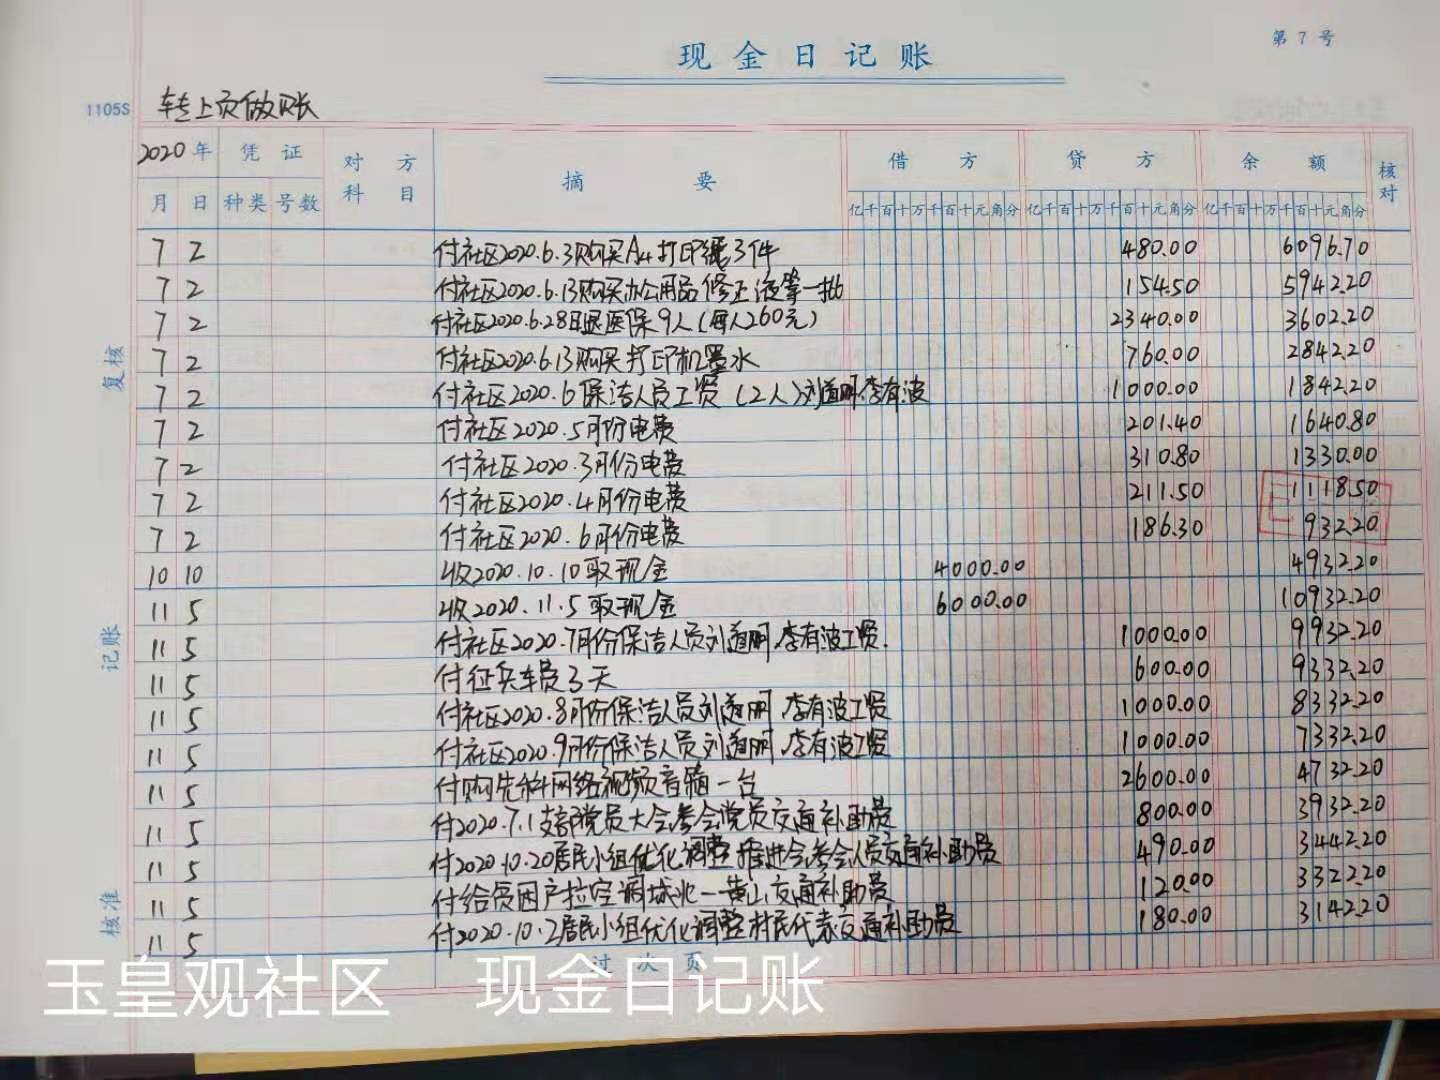 现金日记账
第 7 号
1105S
转上页做账
2020年 凭证 对方科目 摘要 借方 贷方 余额 核对
月 日 种类 号数 亿千百十万千百十元角分 亿千百十万千百十元角分 亿千百十万千百十元角分
7 2 付社区2020.6.3购买A4打印纸3件 480.00 6096.70
7 2 付社区2020.6.13购买办公用品修正液等一批 154.50 5942.20
7 2 付社区2020.6.28日退医保9人(每人260元) 2340.00 3602.20
7 2 付社区2020.6.13购买打印机墨水 760.00 2842.20
7 2 付社区2020.6保洁人员工资(2人)刘道明.李有波 1000.00 1842.20
7 2 付社区2020.5月份电费 201.40 1640.80
7 2 付社区2020.3月份电费 310.80 1330.00
7 2 付社区2020.4月份电费 211.50 1118.50
7 2 付社区2020.6月份电费 186.30 932.20
10 10 收2020.10.10取现金 4000.00 4932.20
11 5 收2020.11.5取现金 6000.00 10932.20
11 5 付社区2020.7月份保洁人员刘道明.李有波工资. 1000.00 9932.20
11 5 付征兵车费3天 600.00 9332.20
11 5 付社区2020.8月份保洁人员刘道明.李有波工资 1000.00 8332.20
11 5 付社区2020.9月份保洁人员刘道明.李有波工资 1000.00 7332.20
11 5 付购先科网络视频音箱一台 2600.00 4732.20
11 5 付2020.7.1支部党员大会参会党员交通补助费 800.00 3932.20
11 5 付2020.10.20居民小组优化调整推进会参会人员交通补助费 490.00 3442.20
11 5 付给贫困户拉空调城北一黄山交通补助费 120.00 3322.20
11 5 付2020.10.2居民小组优化调整村民代表交通补助费 180.00 3142.20
过次页
复核
记账
核准
玉皇观社区 现金日记账